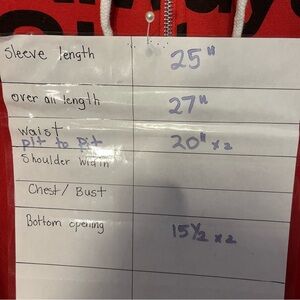 Sleeve length 25"
over all length 27"
waist
pit to pit 20" x2
Shoulder Width
Chest/Bust
Bottom opening 15 1/2 x2